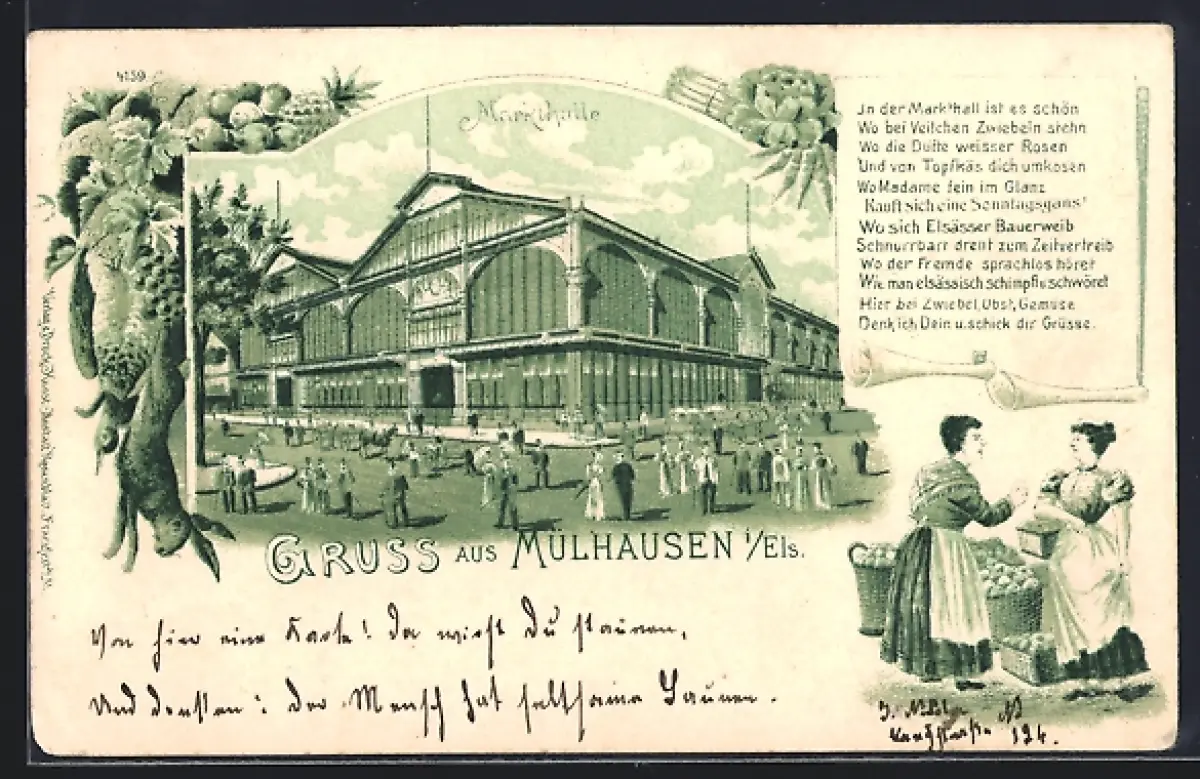 4139
Markthalle
In der Markthall ist es schön
Wo bei Veilchen Zwiebeln stehn
Wo die Düfte weisser Rosen
Und von Topfkäs dich umkosen
Wo Madame fein im Glanz
Kauft sich eine Sonntagsgans!
Wo sich Elsässer Bauerweib
Schnurrbart dreht zum Zeitvertreib
Wo der Fremde sprachlos höret
Wie man elsässisch schimpft u. schwöret
Hier bei Zwiebel, Obst, Gemüse
Denk ich Dein u. schick dir Grüsse.
GRUSS AUS MÜLHAUSEN i/Els.
Von hier eine Karte! da wirst Du staunen,
Und denken: der Mensch hat seltsame Launen.
J.
124.
Verlag